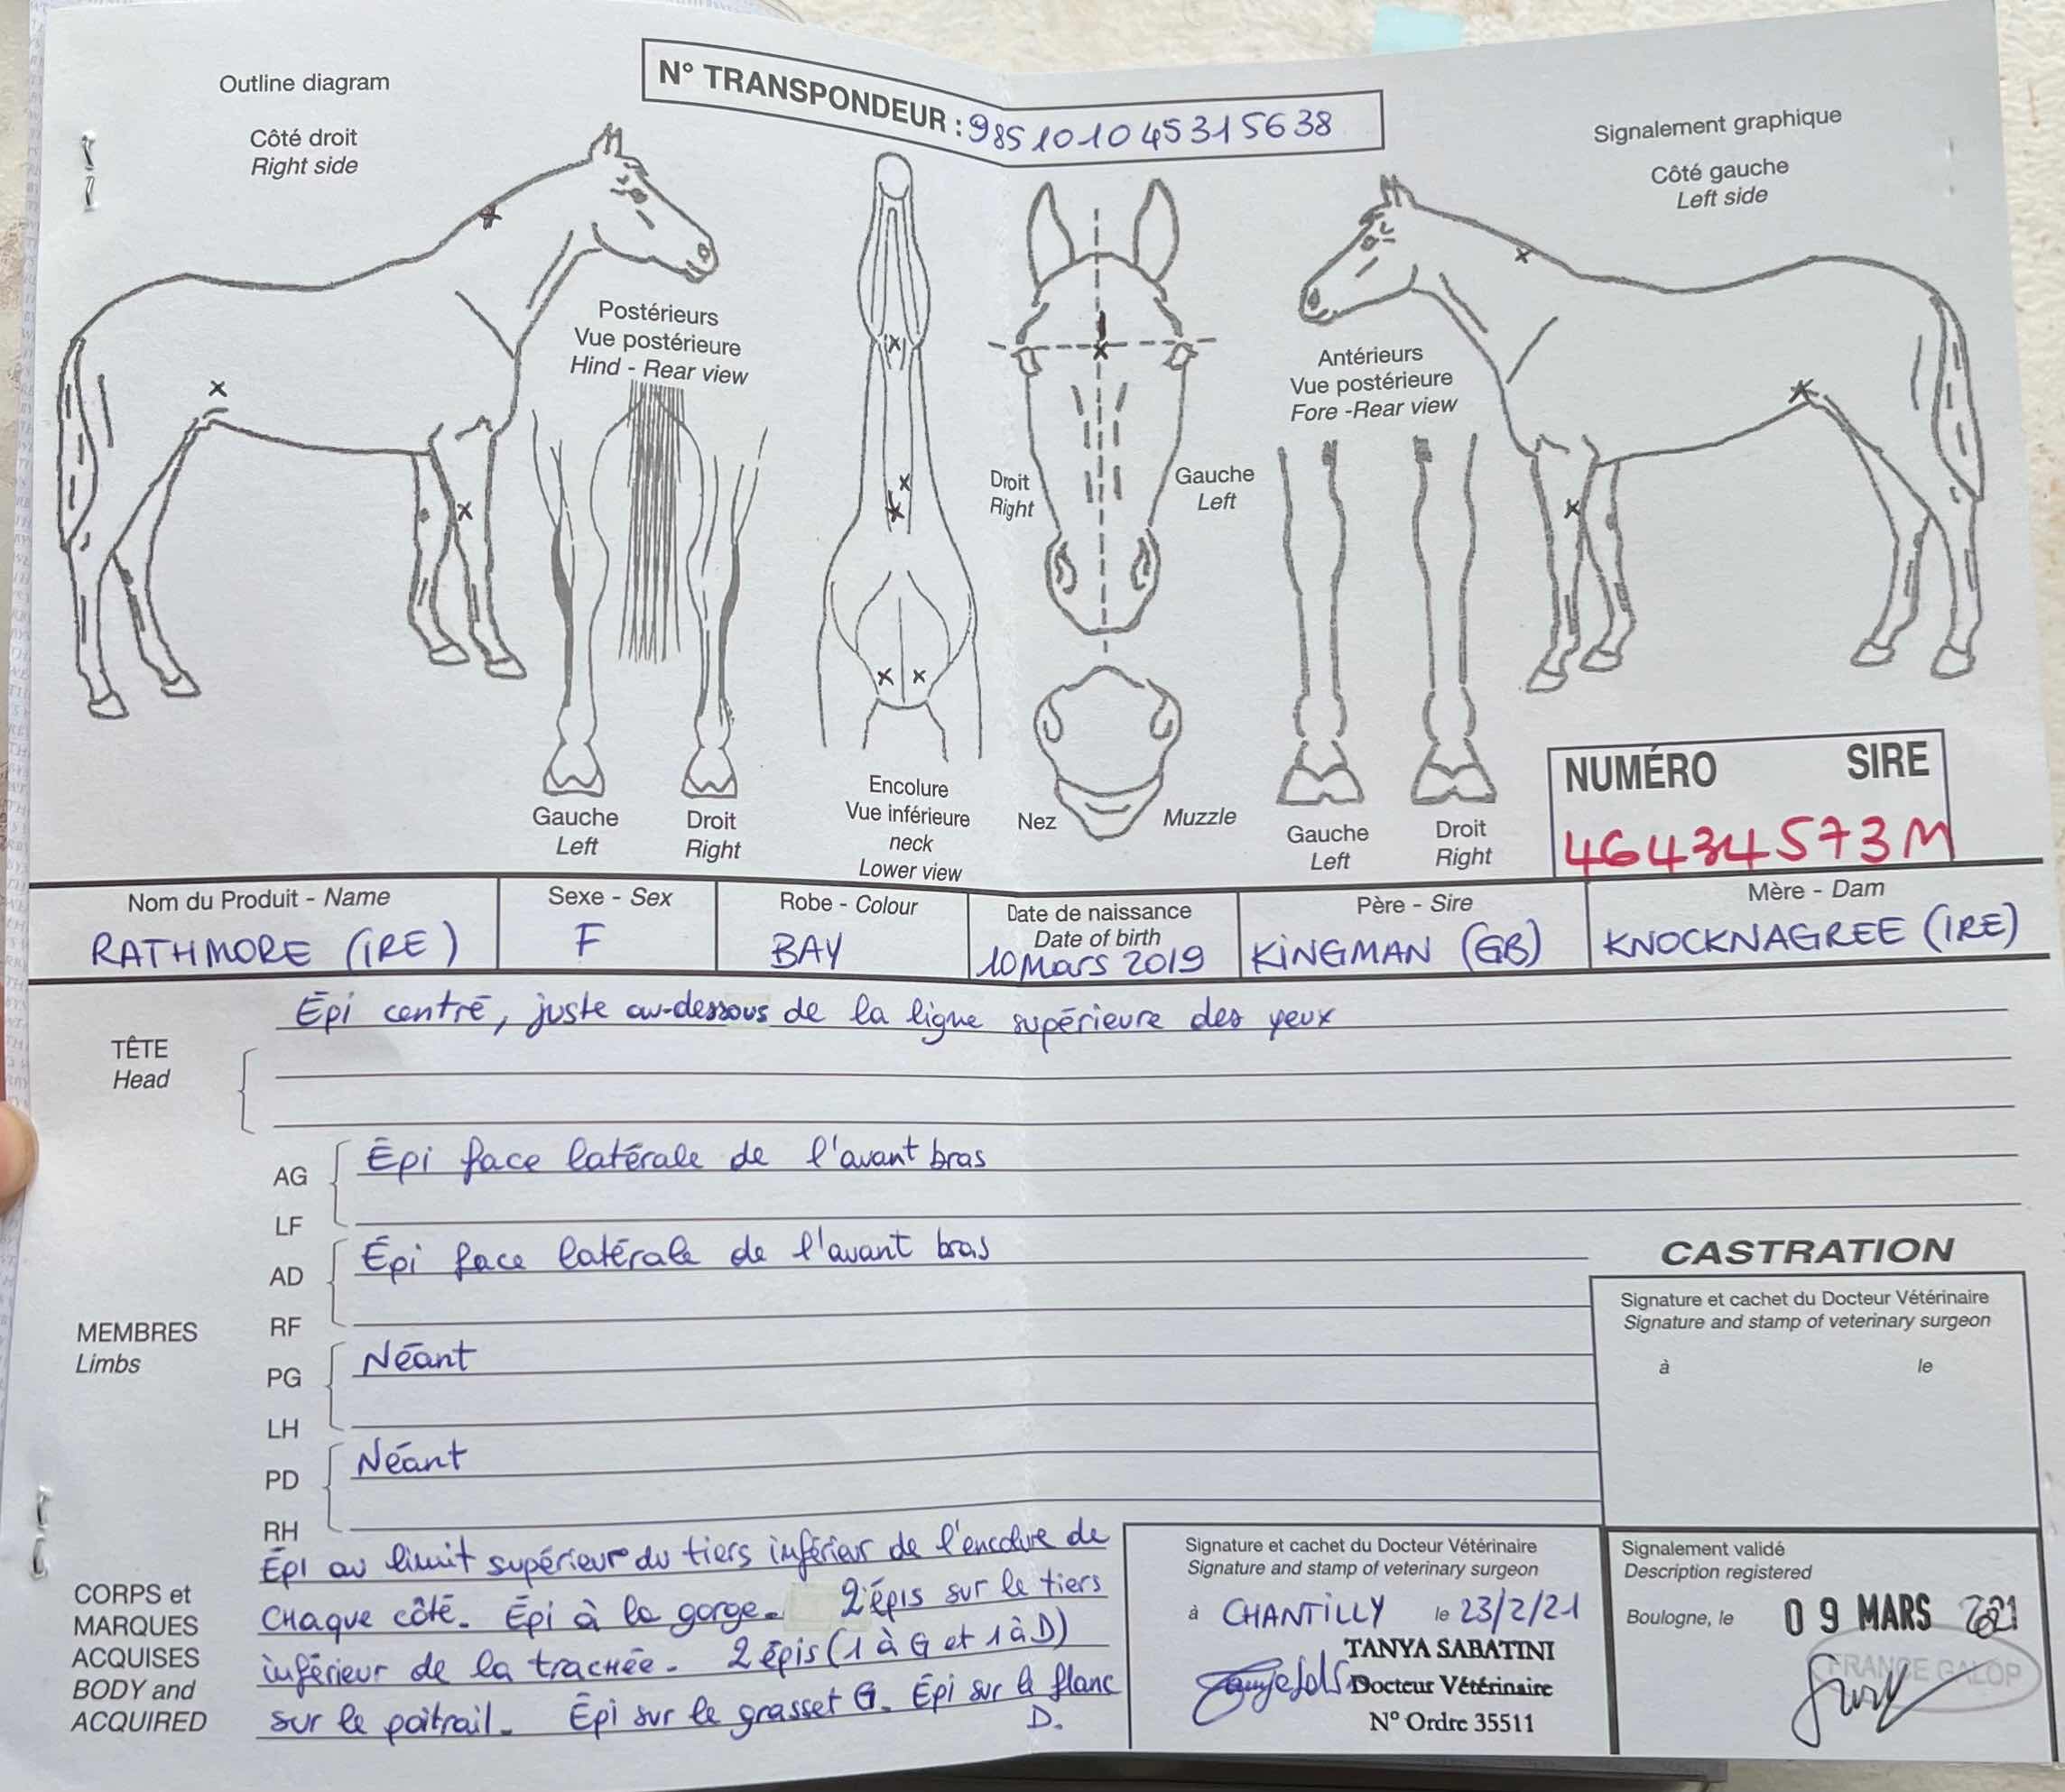 Outline diagram
N° TRANSPONDEUR : 985101045315638
Signalement graphique
Côté droit
Right side
Côté gauche
Left side
Postérieurs
Vue postérieure
Hind - Rear view
Antérieurs
Vue postérieure
Fore -Rear view
Droit
Right
Gauche
Left
Gauche
Left
Droit
Right
Encolure
Vue inférieure
neck
Lower view
Nez
Muzzle
Gauche
Left
Droit
Right
NUMÉRO SIRE
46434573M
Nom du Produit - Name
RATHMORE (IRE)
Sexe - Sex
F
Robe - Colour
BAY
Date de naissance
Date of birth
10 Mars 2019
Père - Sire
KINGMAN (GB)
Mère - Dam
KNOCKNAGREE (IRE)
TÊTE
Head
Épi centré, juste au-dessous de la ligne supérieure des yeux
MEMBRES
Limbs
AG
LF
Épi face latérale de l'avant bras
AD
RF
Épi face latérale de l'avant bras
PG
LH
Néant
PD
RH
Néant
CORPS et
MARQUES
ACQUISES
BODY and
ACQUIRED
Épi au limit supérieur du tiers inférieur de l'encolure de
chaque côté. Épi à la gorge. 2 épis sur le tiers
inférieur de la trachée. 2 épis (1 à G et 1 à D)
sur le poitrail. Épi sur le grasset G. Épi sur le flanc
D.
CASTRATION
Signature et cachet du Docteur Vétérinaire
Signature and stamp of veterinary surgeon
à le
Signature et cachet du Docteur Vétérinaire
Signature and stamp of veterinary surgeon
à CHANTILLY le 23/2/21
TANYA SABATINI
Docteur Vétérinaire
N° Ordre 35511
Signalement validé
Description registered
Boulogne, le 09 MARS 2021
FRANCE GALOP